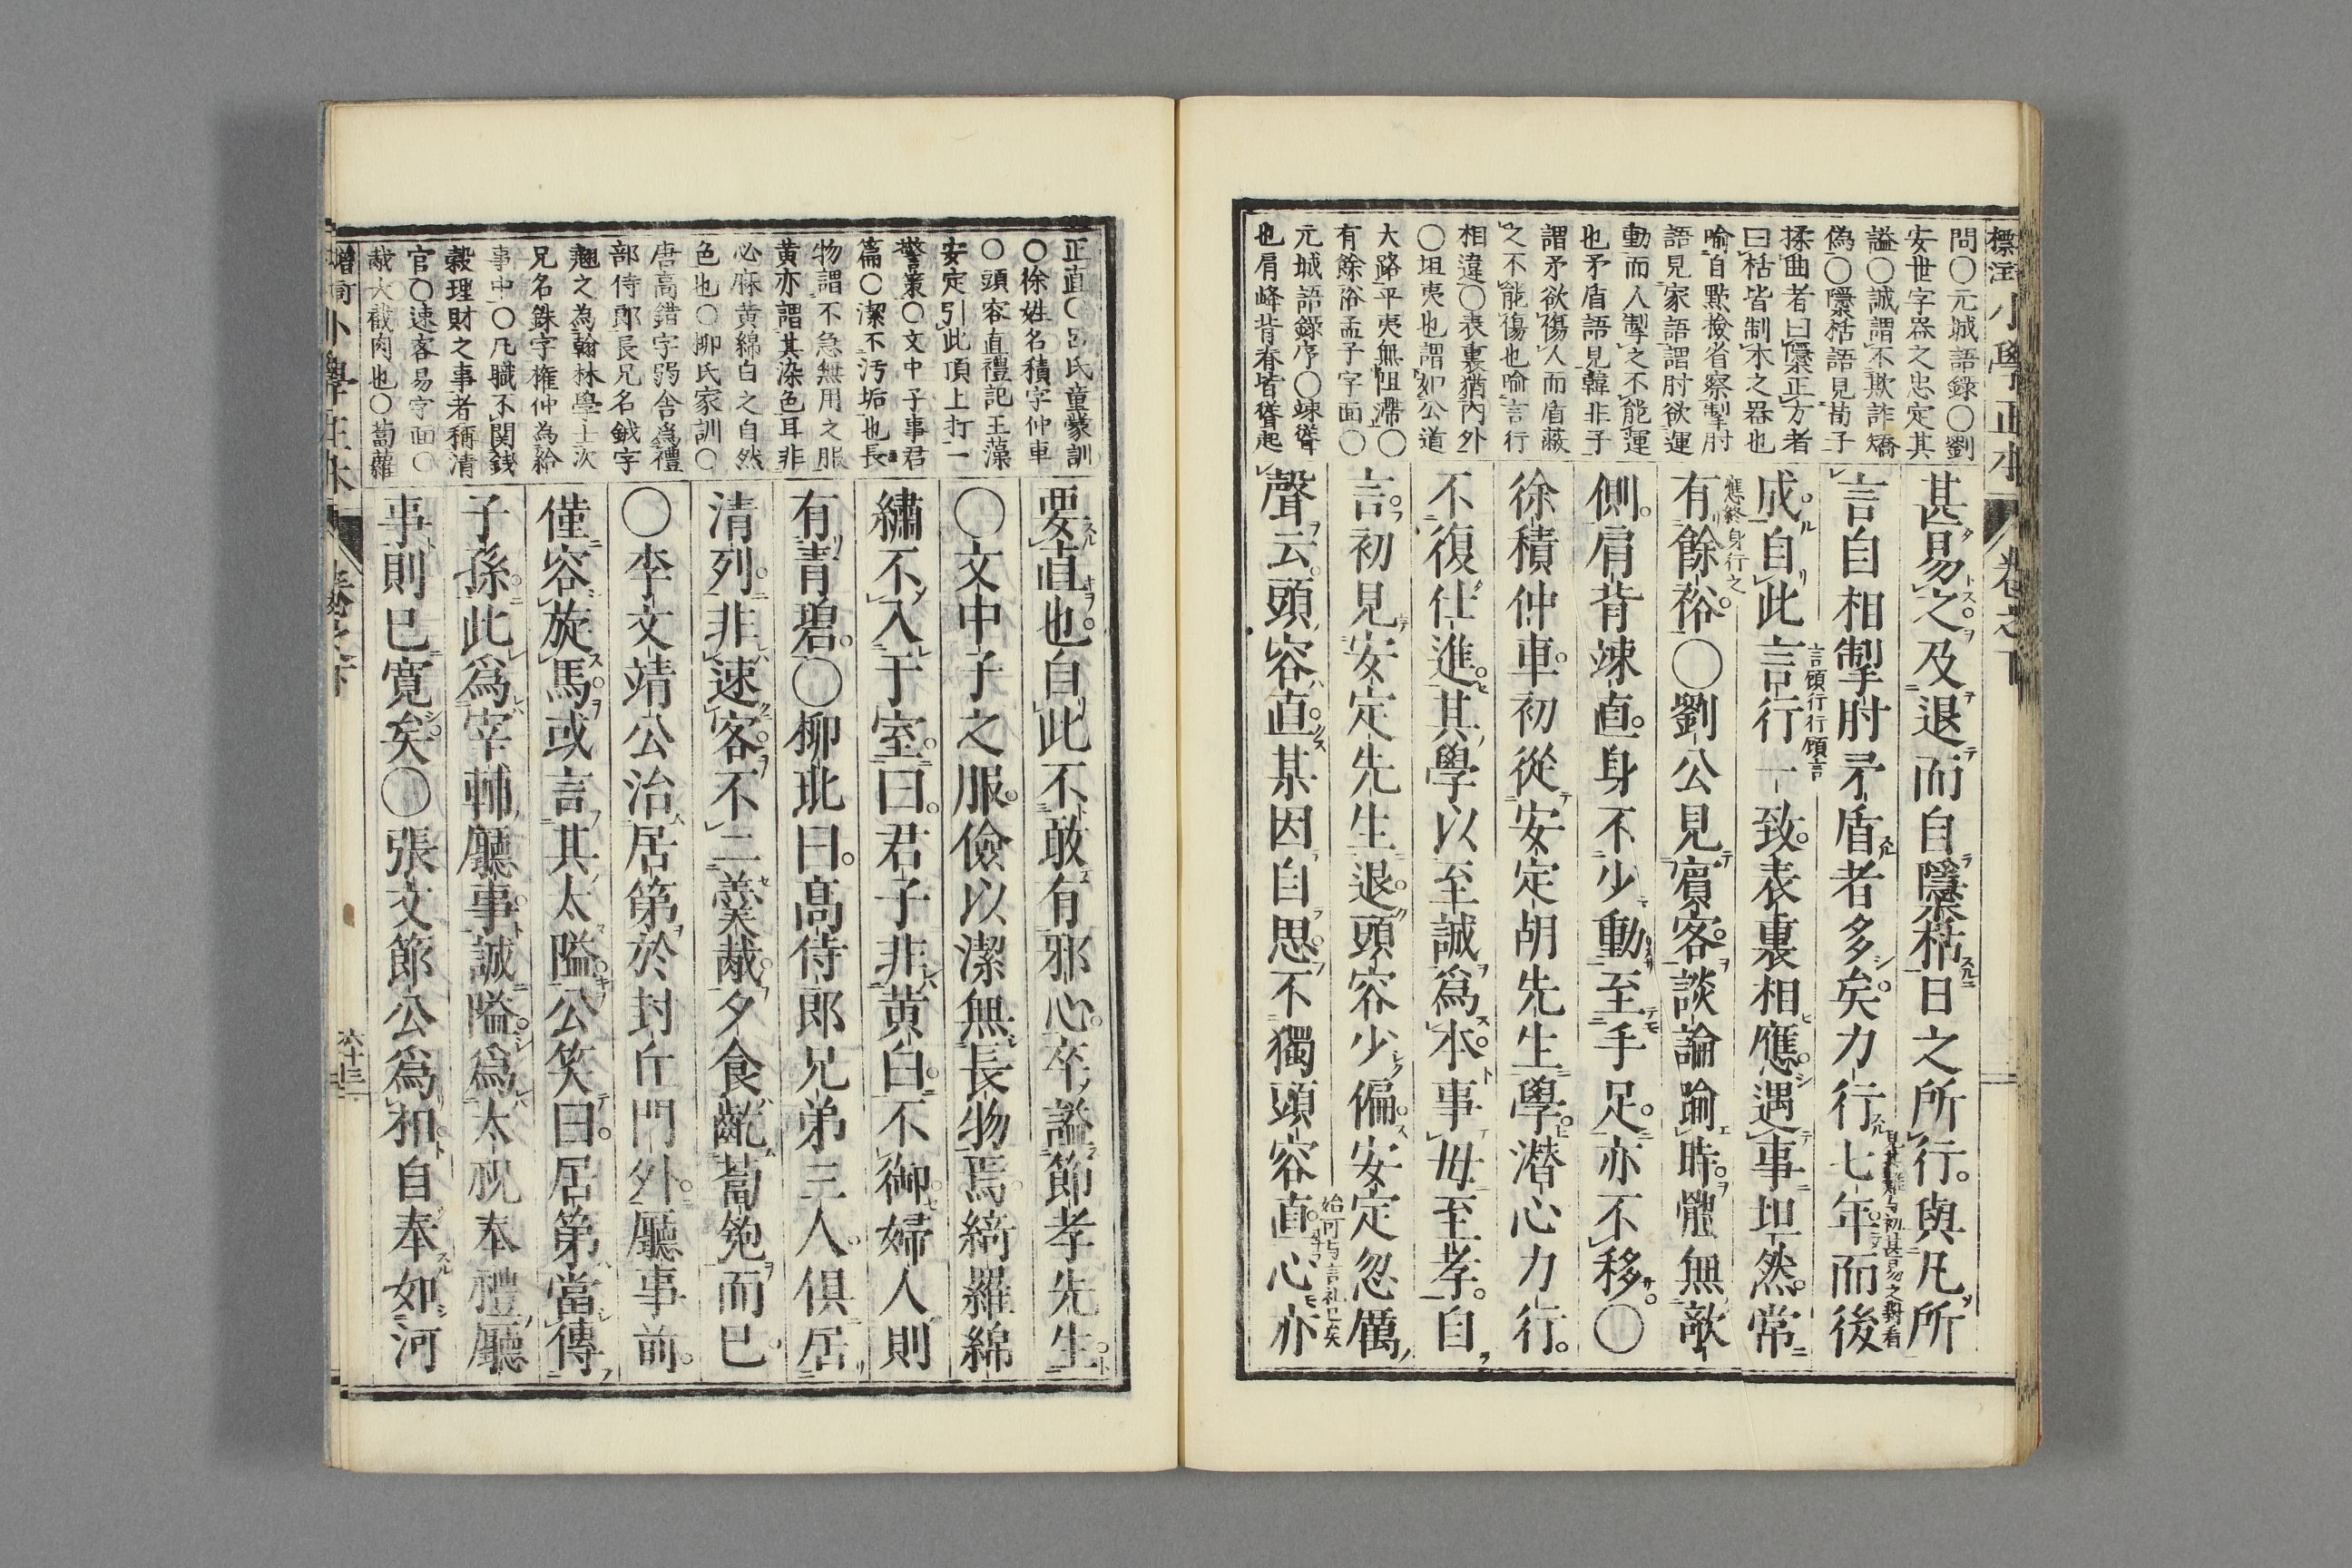 標注小學正本
卷之下
問○元城語録○劉
安世字器之忠定其
謚○誠謂不欺詐矯
偽○隱栝語見荀子
揉曲者曰隱正方者
曰栝皆制木之器也
喻自㸃檢省察掣肘
語見家語謂肘欲運
動而人掣之不能運
也矛盾語見韓非子
謂矛欲傷人而盾蔽
之不能傷也喻言行
相違○表裏猶内外
○坦夷也謂如公道
大路平夷無阻滯○
有餘裕孟子字面○
元城語録序○竦聳
也肩峰背脊皆聳起
甚易之及退而自隱栝日之所行。與凡所
言自相掣肘矛盾者多矣。力行七年而後
見其難與初甚易之對看
成。自此言行一致。表裏相應。遇事坦然。常
言顧行行顧言
有餘裕。○劉公見賓客。談論踰時。體無敧
應終身行之
側。肩背竦直。身不少動。至手足。亦不移。○
徐積仲車。初從安定胡先生學。潜心力行。
不復仕進。其學以至誠爲本。事母至孝。自
言。初見安定先生退。頭容少偏。安定忽厲
聲云。頭容直。某因自思。不獨頭容直。心亦
始可与言礼已矣
正直○呂氏童蒙訓
○徐姓名積字仲車
○頭容直禮記王藻
安定引此頂上打一
警策○文中子事君
篇○潔不汚垢也長
物謂不急無用之服
黄亦謂其染色耳非
必麻黄綿白之自然
色也○柳氏家訓○
唐高錯字弱舎為禮
部侍郎長兄名釴字
翹之為翰林學士次
兄名銖字權仲為給
事中○凡職不関銭
穀理財之事者稱清
官○速客易字面○
胾大截肉也○蔔蘿
要直也。自此不敢有邪心。卒謚節孝先生。
○文中子之服。儉以潔無長物焉。綺羅綿
繡不入于室。曰。君子非黄白。不御。婦人則
有青碧。○柳玭曰。高侍郎兄弟三人。俱居
清列。非速客。不二羹胾。夕食齕蔔匏而已。
○李文靖公治居第於封丘門外。廳事前。
僅容旋馬。或言其太隘。公笑曰。居第當傳
子孫。此爲宰輔廳事。誠隘。爲太祝奉禮廳
事則已寛矣。○張文節公爲相。自奉如河
增簡小學正本
卷之下
六十三